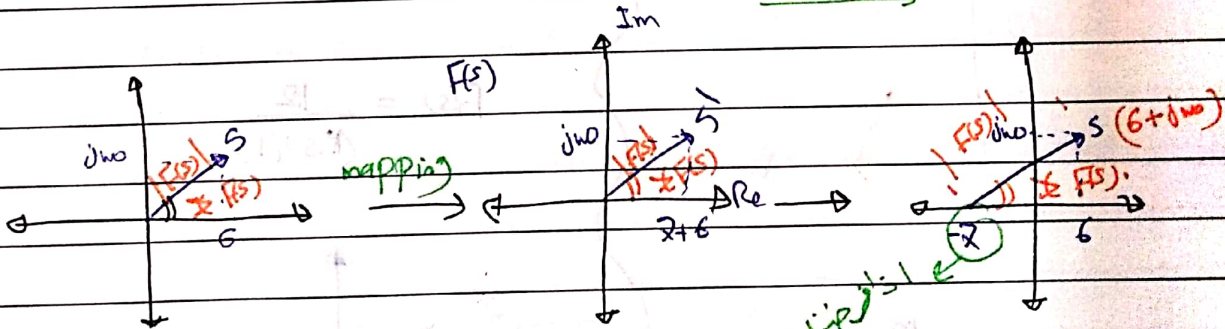 Im
F(s)
jwo
|F(s)|
S
∡ F(s)
6
mapping
jwo
|F(s)|
S
∡ F(s)
Re
7+6
|F(s)|
jwo
S (6+jwo)
∡ F(s)
-7
6